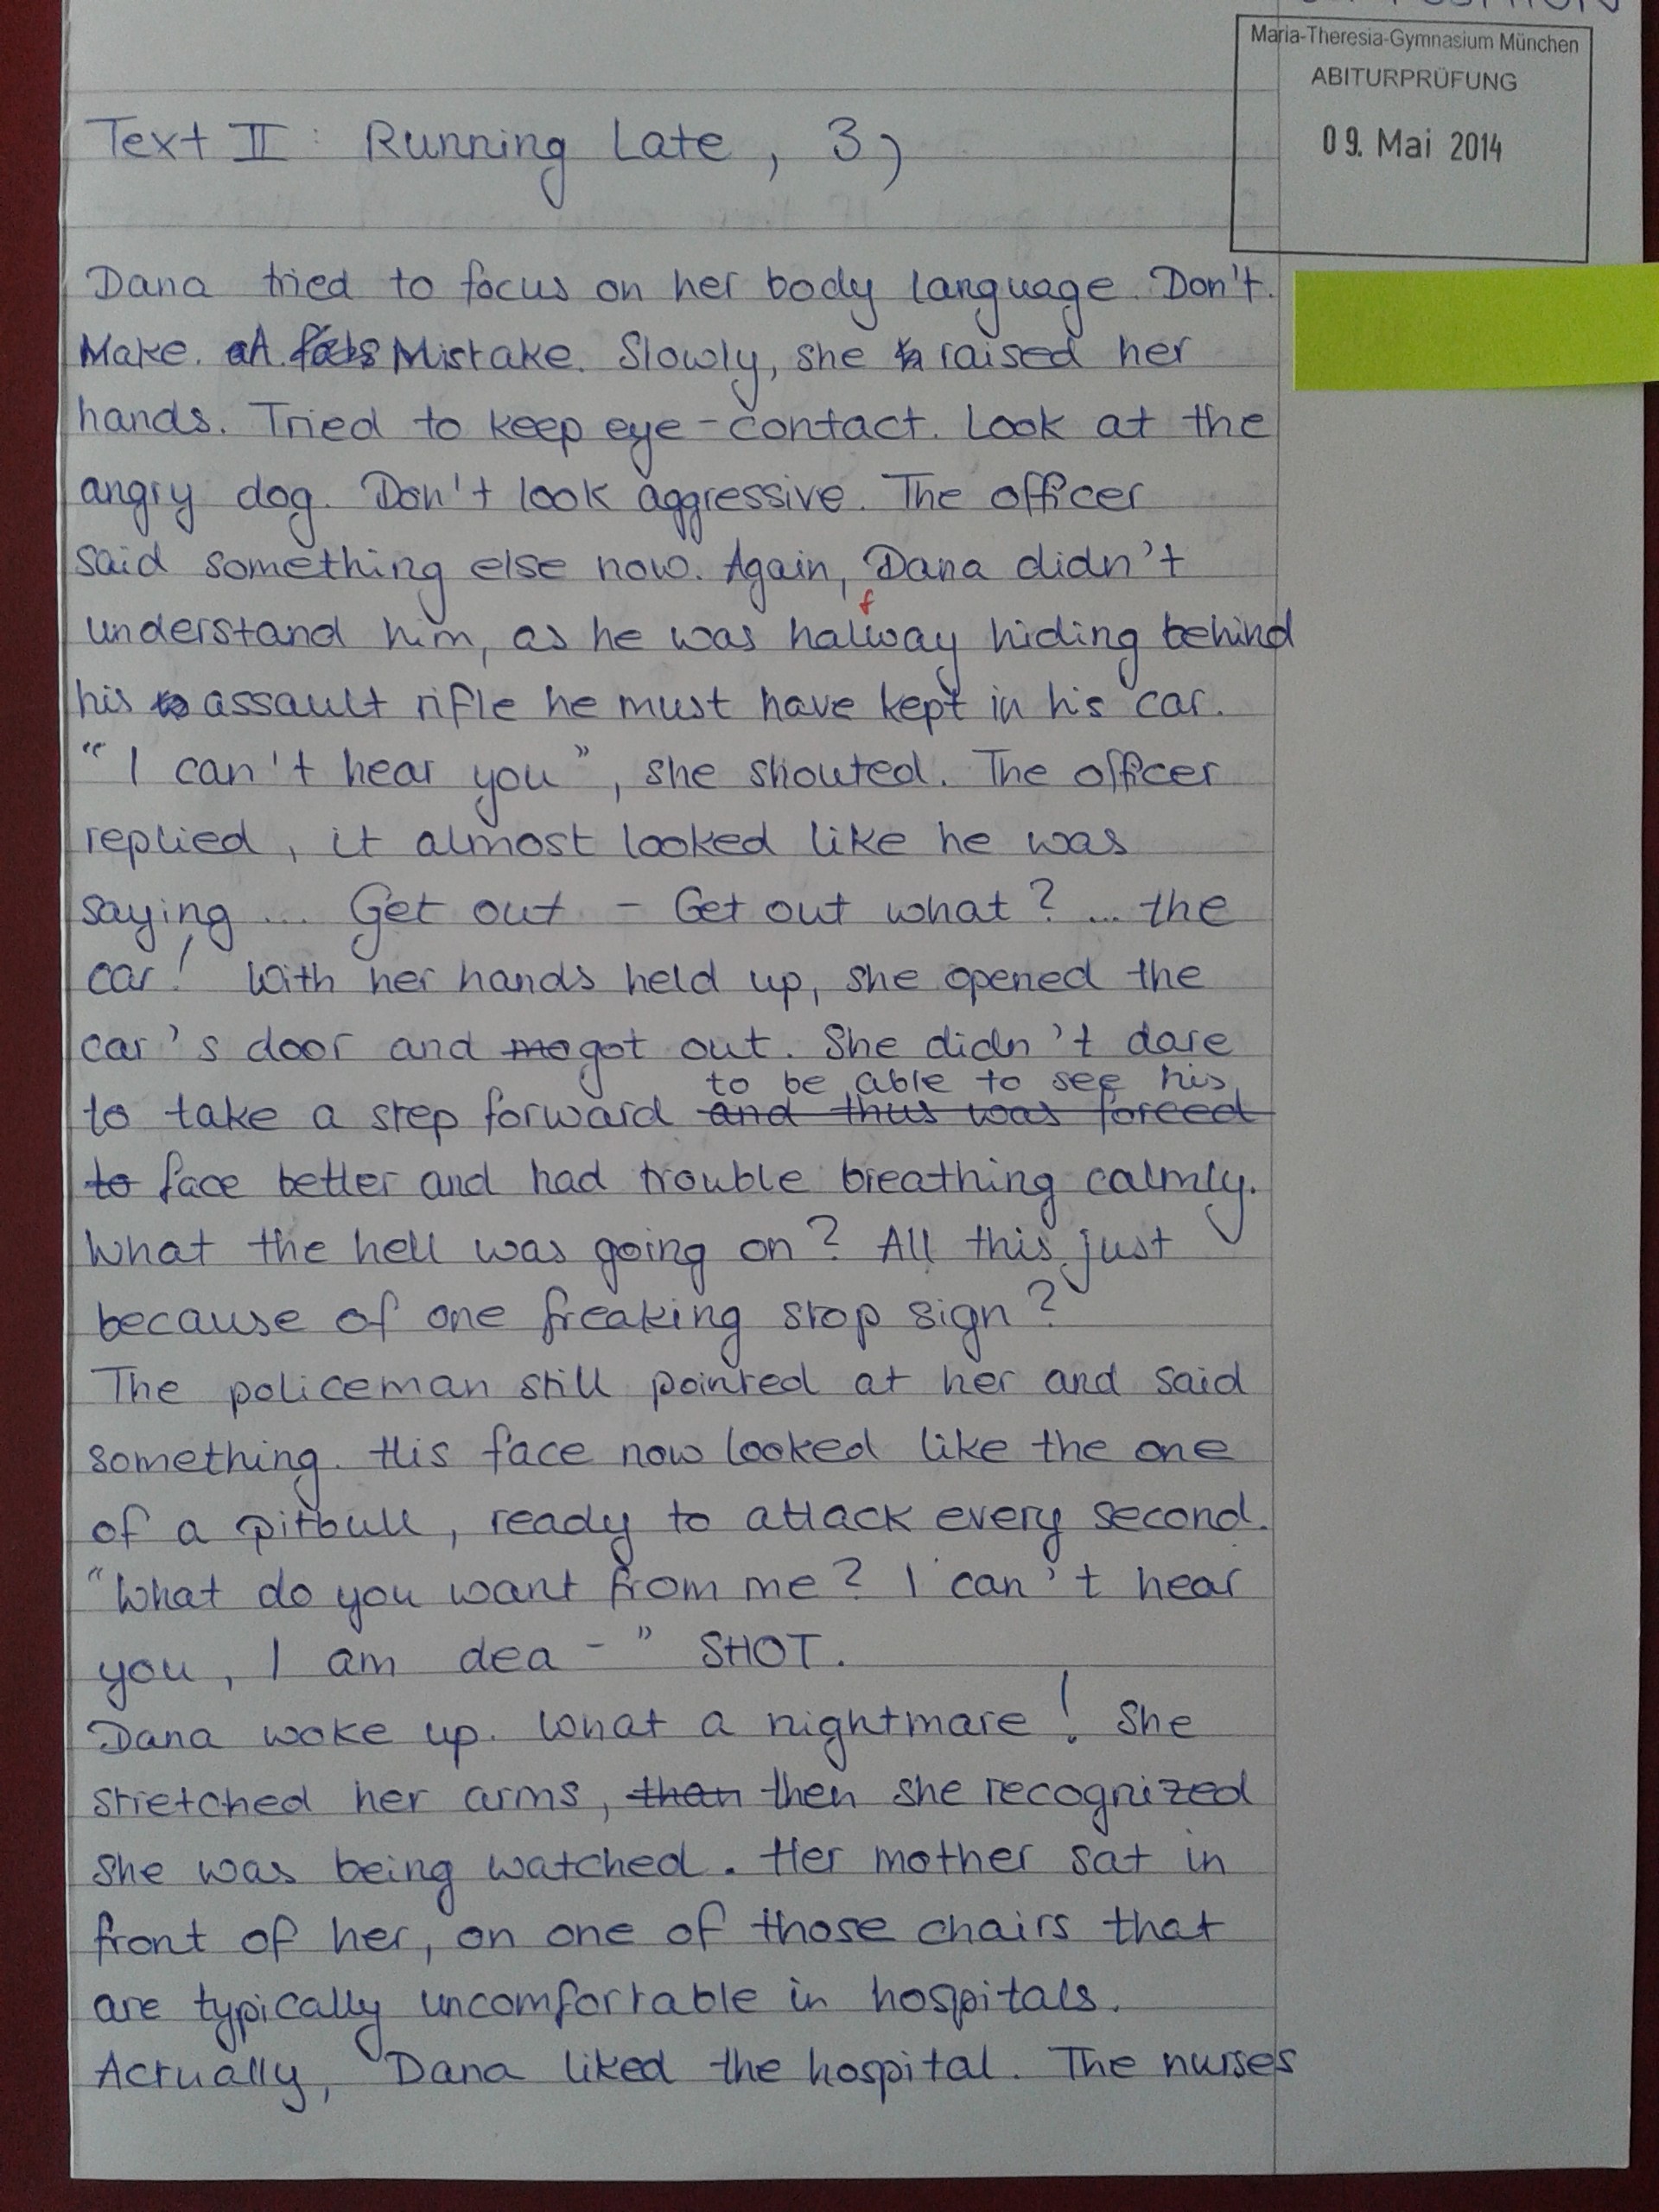 Maria-Theresia-Gymnasium München
ABITURPRÜFUNG
09. Mai 2014
Text II: Running Late, 3)
Dana tried to focus on her body language. Don't.
Make. A. Mistake. Slowly, she raised her
hands. Tried to keep eye-contact. Look at the
angry dog. Don't look aggressive. The officer
said something else now. Again, Dana didn't
f
understand him, as he was halway hiding behind
his assault rifle he must have kept in his car.
"I can't hear you", she shouted. The officer
replied, it almost looked like he was
saying ... Get out - Get out what? ... the
car! With her hands held up, she opened the
car's door and got out. She didn't dare
to be able to see his
to take a step forward and thus was forced
to face better and had trouble breathing calmly.
What the hell was going on? All this just
because of one freaking stop sign?
The policeman still pointed at her and said
something. His face now looked like the one
of a pitbull, ready to attack every second.
"What do you want from me? I can't hear
you, I am dea-" SHOT.
Dana woke up. What a nightmare! She
stretched her arms, than then she recognized
she was being watched. Her mother sat in
front of her, on one of those chairs that
are typically uncomfortable in hospitals.
Actually, Dana liked the hospital. The nurses